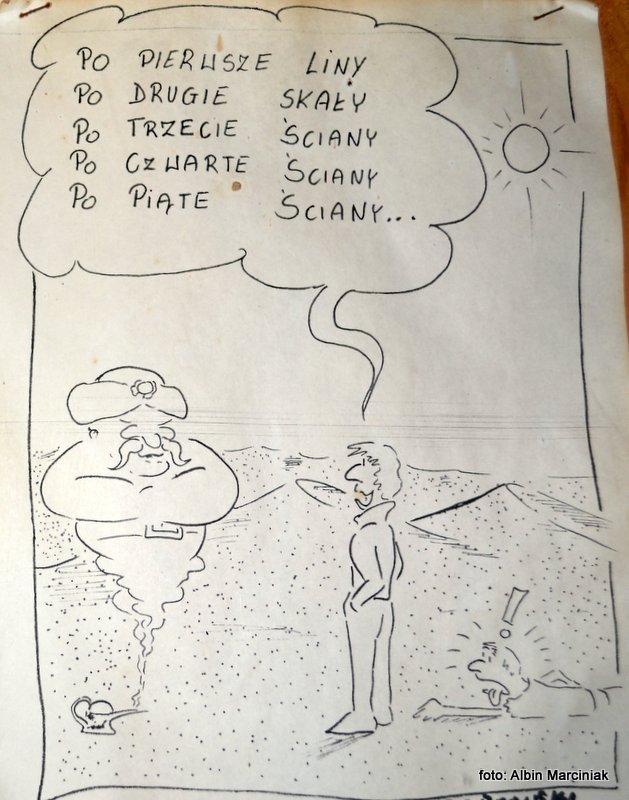 PO PIERWSZE LINY
PO DRUGIE SKAŁY
PO TRZECIE ŚCIANY
PO CZWARTE ŚCIANY
PO PIĄTE ŚCIANY...
!
foto: Albin Marciniak